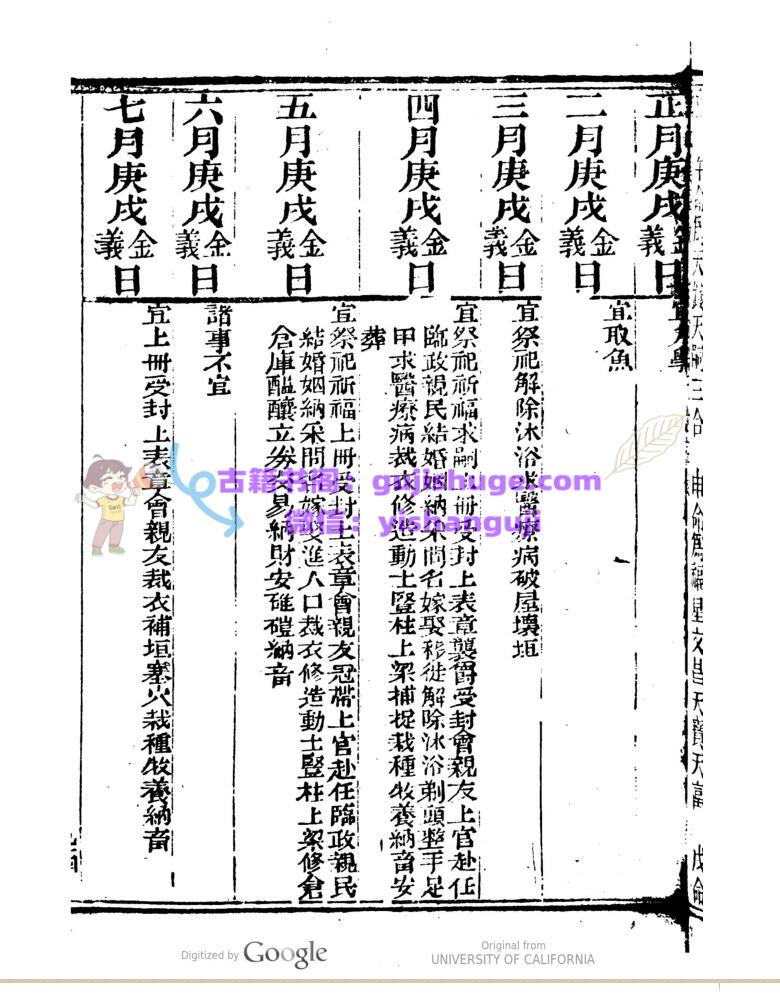 正月庚戌金義日
宜入學
二月庚戌金義日
宜取魚
三月庚戌金義日
宜祭祀解除沐浴求醫療病破屋壞垣
四月庚戌金義日
宜祭祀祈福求嗣上冊受封上表章襲爵受封會親友上官赴任
臨政親民結婚姻納采問名嫁娶移徙解除沐浴剃頭整手足
甲求醫療病裁衣修造動土豎柱上梁捕捉栽種牧養納畜安
葬
五月庚戌金義日
宜祭祀祈福上冊受封上表章會親友冠帶上官赴任臨政親民
結婚姻納采問名嫁娶進人口裁衣修造動土豎柱上梁修倉
倉庫醞釀立券交易納財安碓磑納畜
六月庚戌金義日
諸事不宜
七月庚戌金義日
宜上冊受封上表章會親友裁衣補垣塞穴栽種牧養納畜
古籍书阁：gujishuge.com
微信：yishanguji
Digitized by Google
Original from
UNIVERSITY OF CALIFORNIA